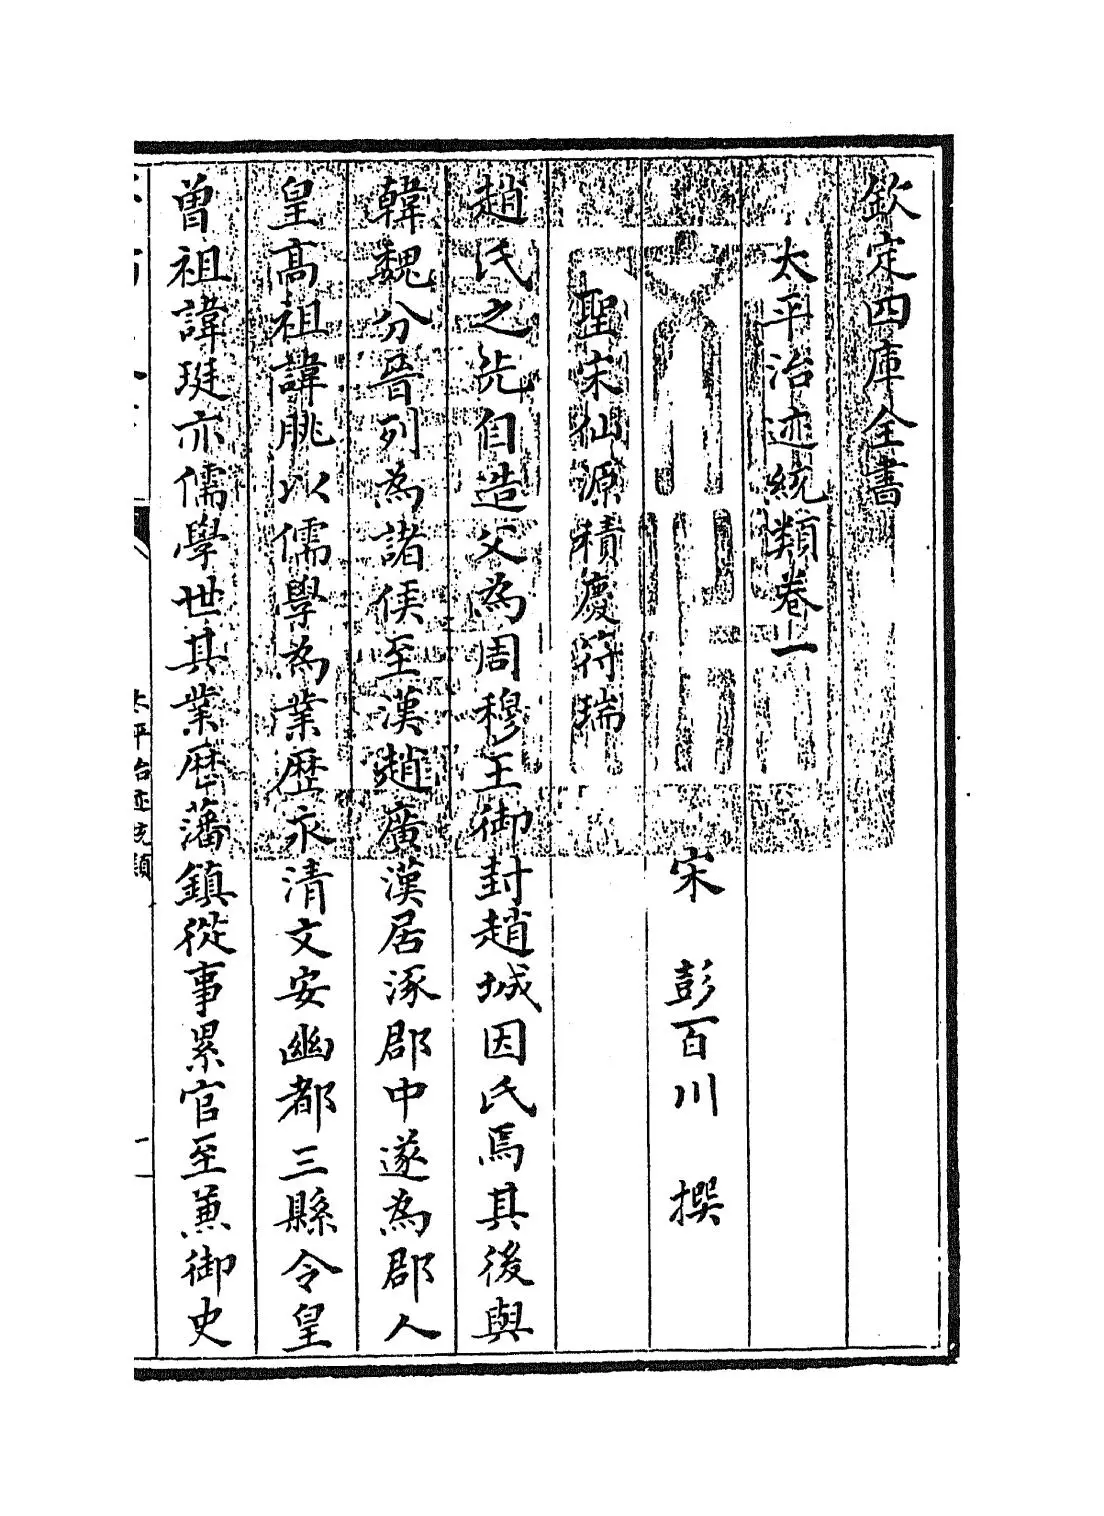 欽定四庫全書
太平治迹統類卷一
宋 彭百川 撰
聖宋仙源積慶符瑞
趙氏之先自造父為周穆王御封趙城因氏焉其後與
韓魏分晉列為諸侯至漢趙廣漢居涿郡中遂為郡人
皇高祖諱朓以儒學為業歴永清文安幽都三縣令皇
曽祖諱珽亦儒學世其業歴藩鎮從事累官至兼御史
太平治迹統類